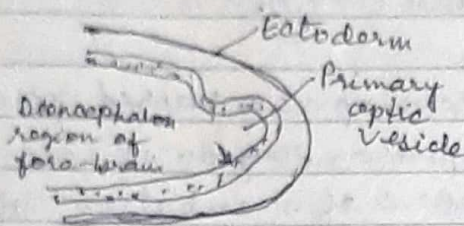 Ectoderm
Primary
optic
Vesicle
Diencephalon
region of
fore-brain